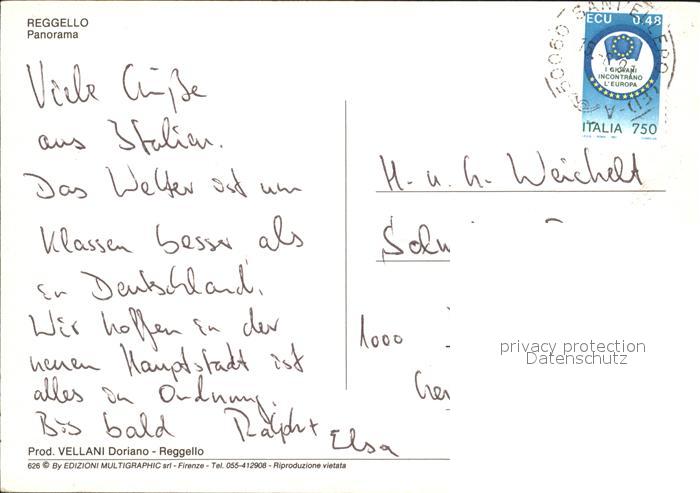 REGGELLO
Panorama
Viele Grüße
aus Italien.
Das Wetter ist um
Klassen besser als
in Deutschland.
Wir hoffen in der
neuen Hauptstadt ist
alles in Ordnung.
Bis bald Ralph + Elsa
Prod. VELLANI Doriano - Reggello
626 © By EDIZIONI MULTIGRAPHIC srl - Firenze - Tel. 055-412908 - Riproduzione vietata
ECU 0.48
I GIOVANI
INCONTRANO
L'EUROPA
ITALIA 750
50066
H. u. G. Weichelt
1000
privacy protection
Datenschutz